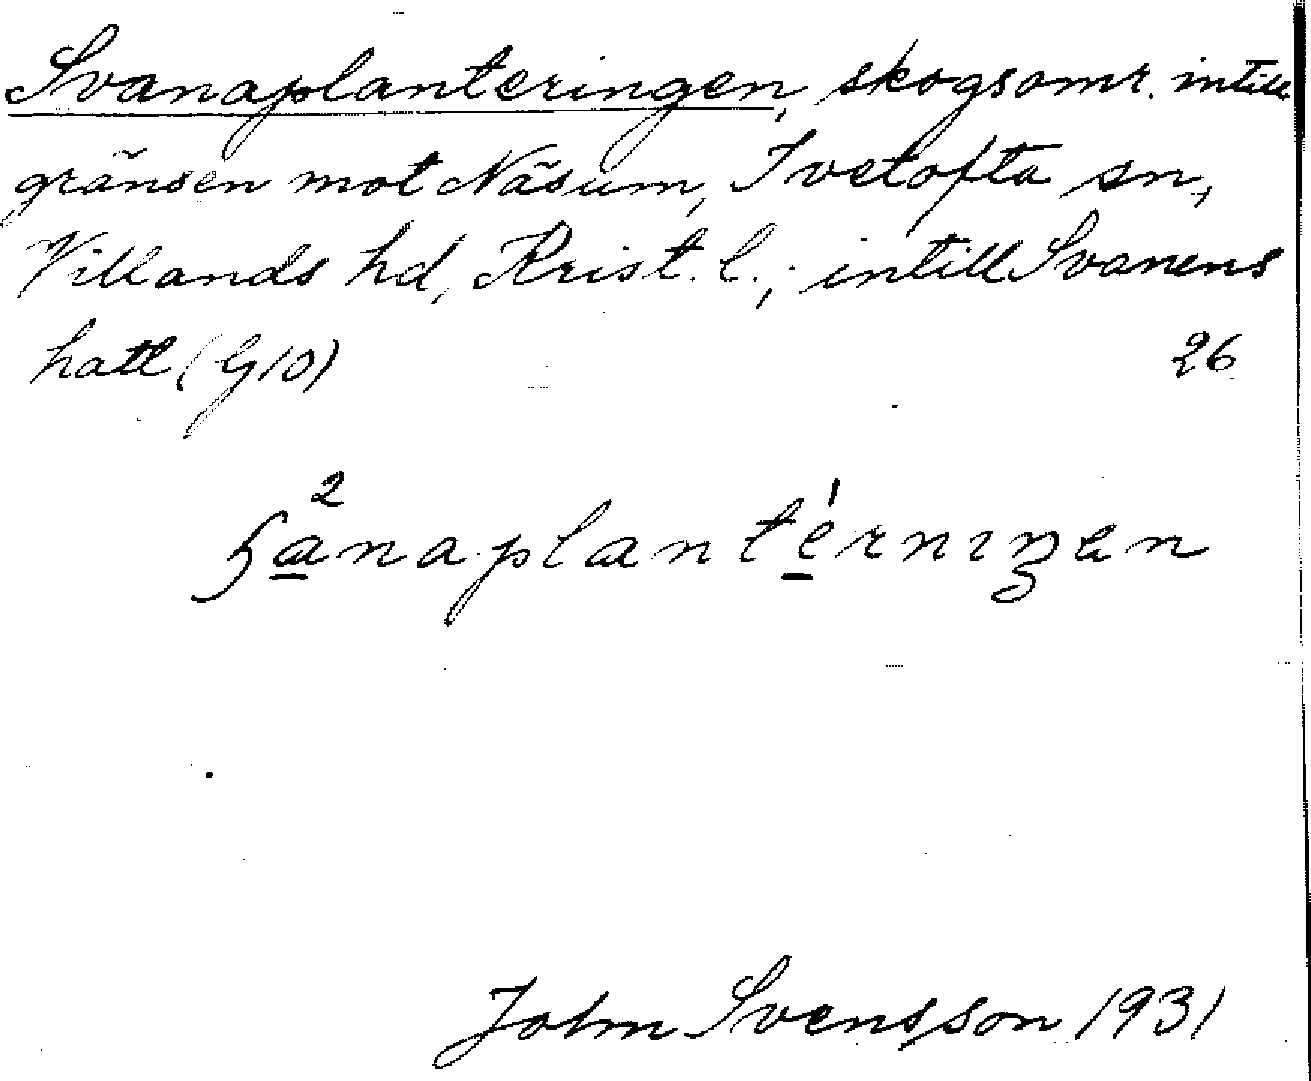 Svanaplanteringen, skogsomr. intill
gränsen mot Näsum, Ivetofta sn,
Villands hd, Krist. l.; intill Svanens
hall (G10) 26
John Svensson 1931